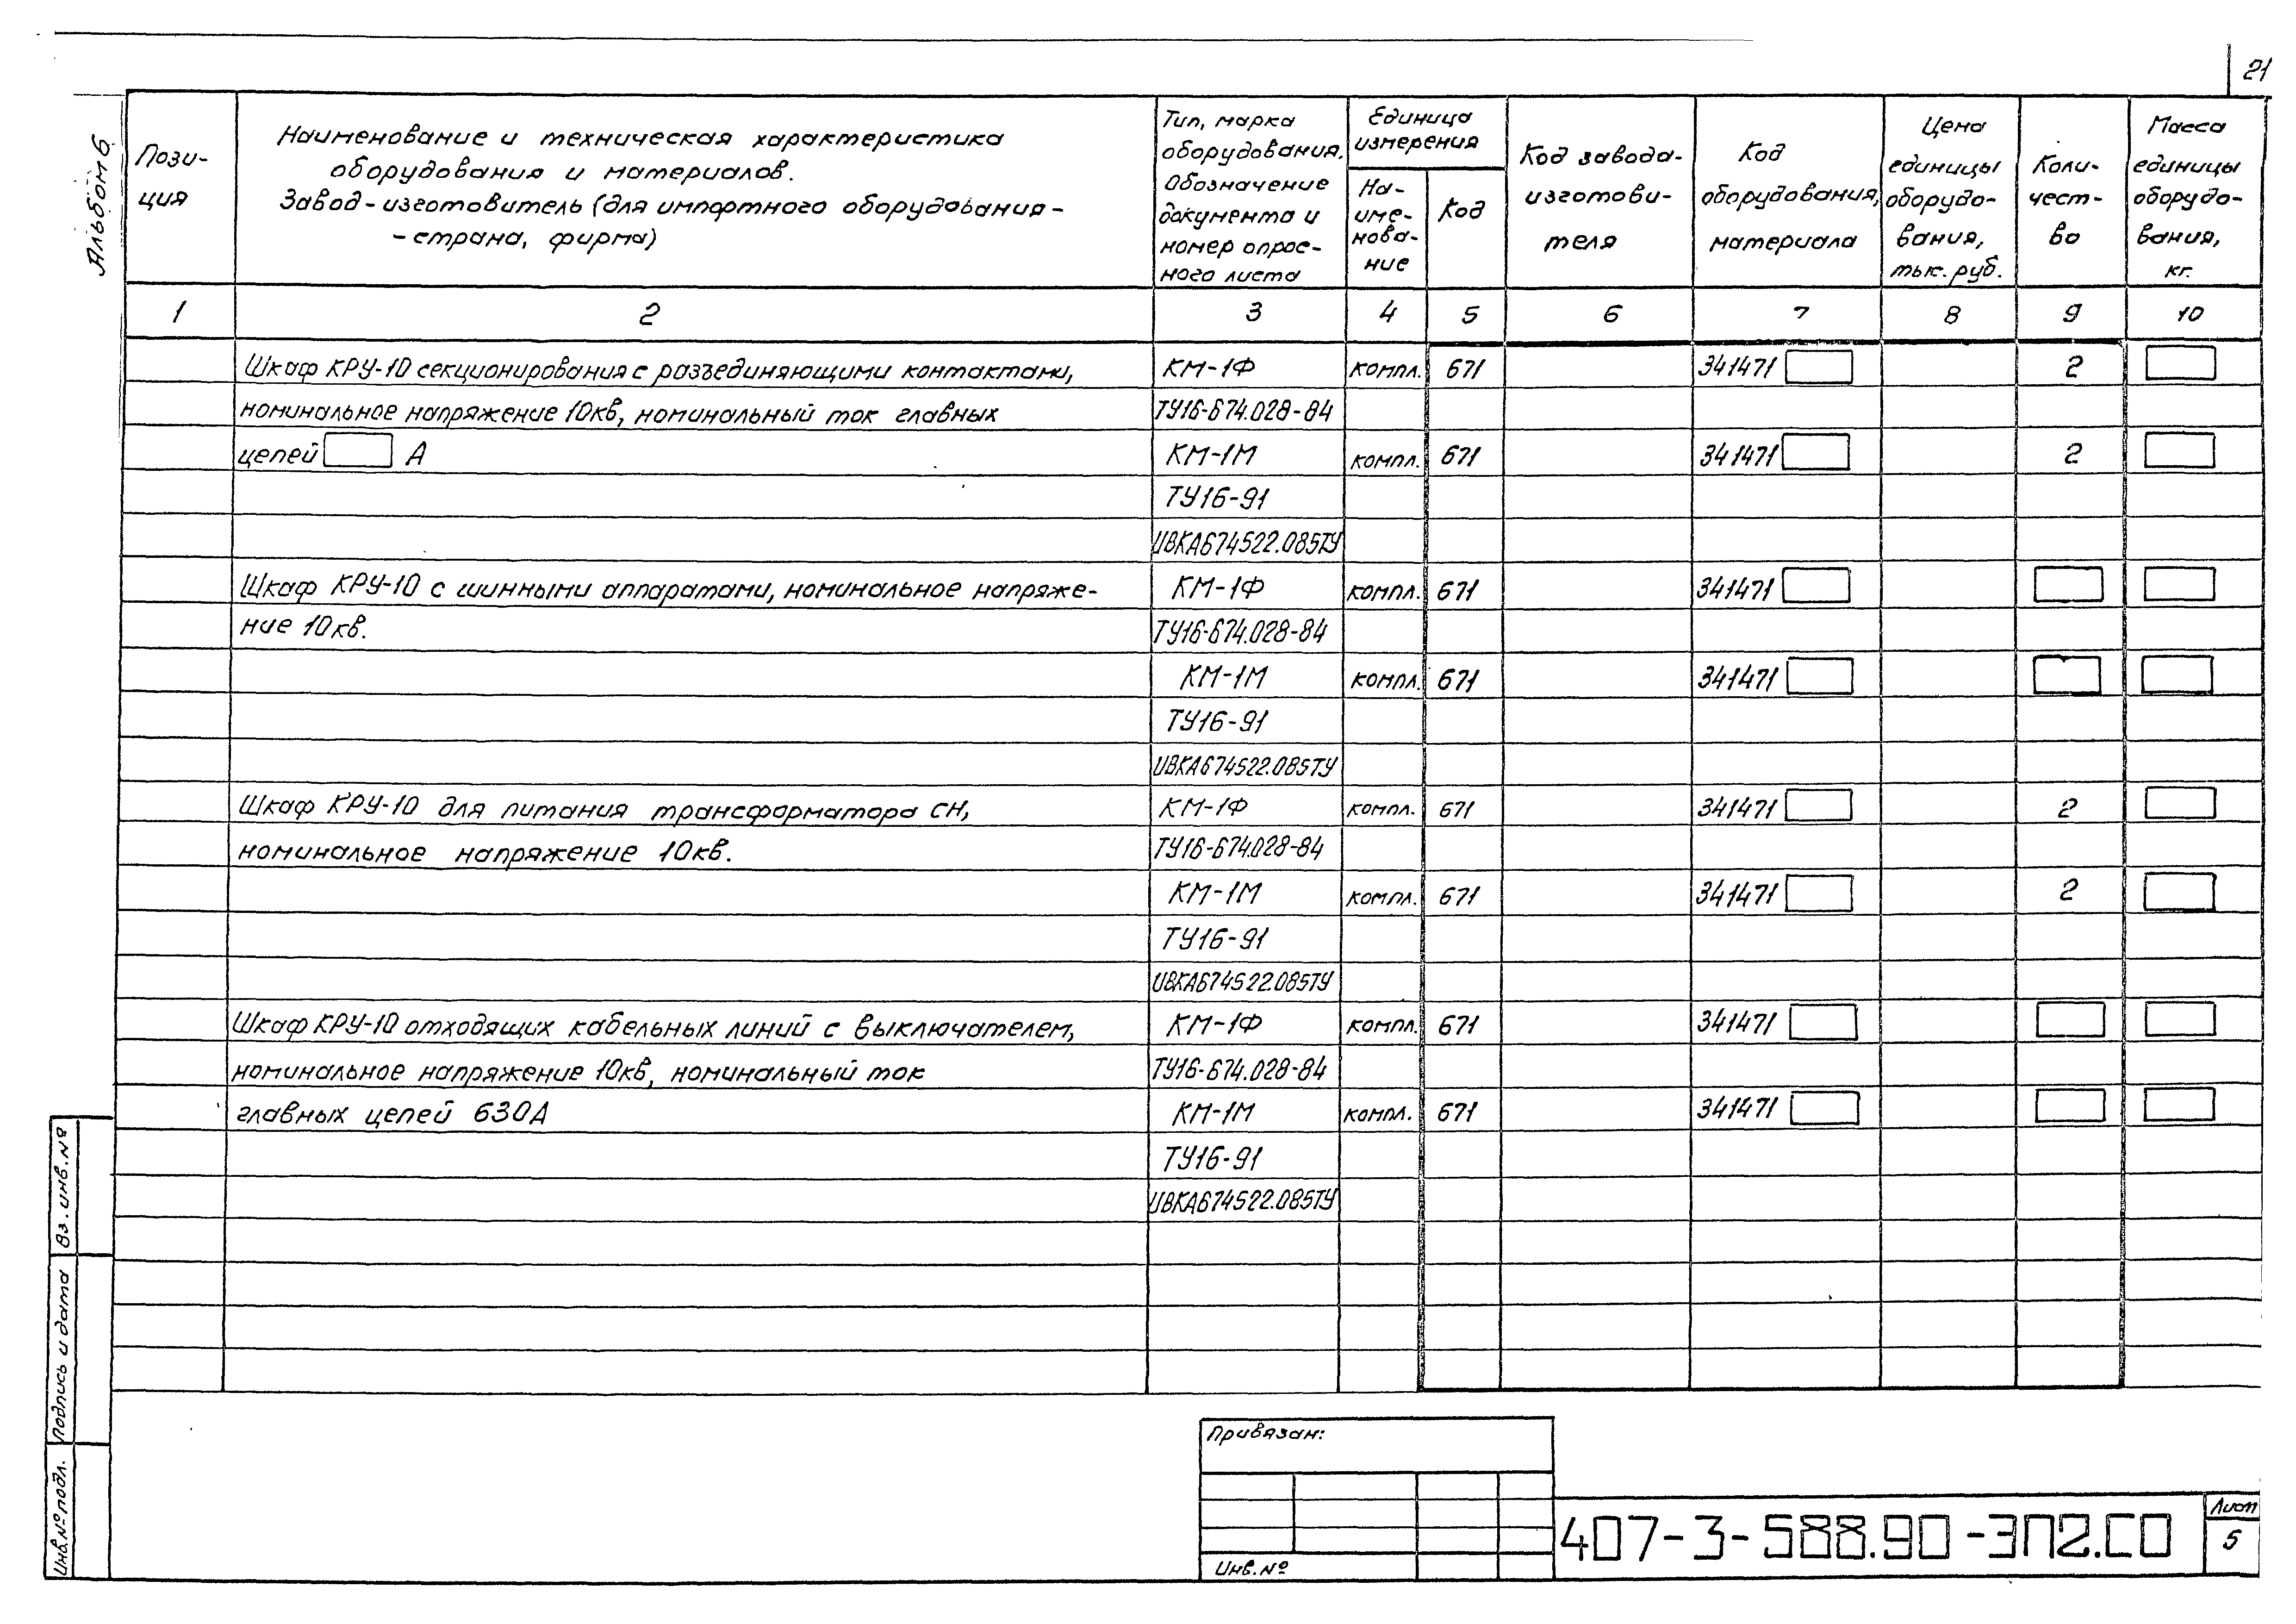 21
Альбом 6
Пози-
ция
Наименование и техническая характеристика
оборудования и материалов.
Завод-изготовитель (для импортного оборудования-
-страна, фирма)
Тип, марка
оборудования.
Обозначение
документа и
номер опрос-
ного листа
Единица
измерения
На-
име-
нова-
ние
Код
Код завода-
изготови-
теля
Код
оборудования,
материала
Цена
единицы
оборудо-
вания,
тыс. руб.
Коли-
чест-
во
Масса
единицы
оборудо-
вания,
кг.
1 2 3 4 5 6 7 8 9 10
Шкаф КРУ-10 секционирования с разъединяющими контактами, КМ-1Ф компл. 671 341471 2
номинальное напряжение 10кв, номинальный ток главных ТУ16-674.028-84
цепей А КМ-1М компл. 671 341471 2
ТУ16-91
ИВКА674522.085ТУ
Шкаф КРУ-10 с шинными аппаратами, номинальное напряже- КМ-1Ф компл. 671 341471
ние 10кв. ТУ16-674.028-84
КМ-1М компл. 671 341471
ТУ16-91
ИВКА674522.085ТУ
Шкаф КРУ-10 для питания трансформатора СН, КМ-1Ф компл. 671 341471 2
номинальное напряжение 10кв. ТУ16-674.028-84
КМ-1М компл. 671 341471 2
ТУ16-91
ИВКА674522.085ТУ
Шкаф КРУ-10 отходящих кабельных линий с выключателем, КМ-1Ф компл. 671 341471
номинальное напряжение 10кв, номинальный ток ТУ16-674.028-84
главных цепей 630А КМ-1М компл. 671 341471
ТУ16-91
ИВКА674522.085ТУ
Вз. инв. №
Подпись и дата
Инв.№ подл.
Привязан:
Инв.№
407-3-588.90-ЭП2.СО
Лист
5